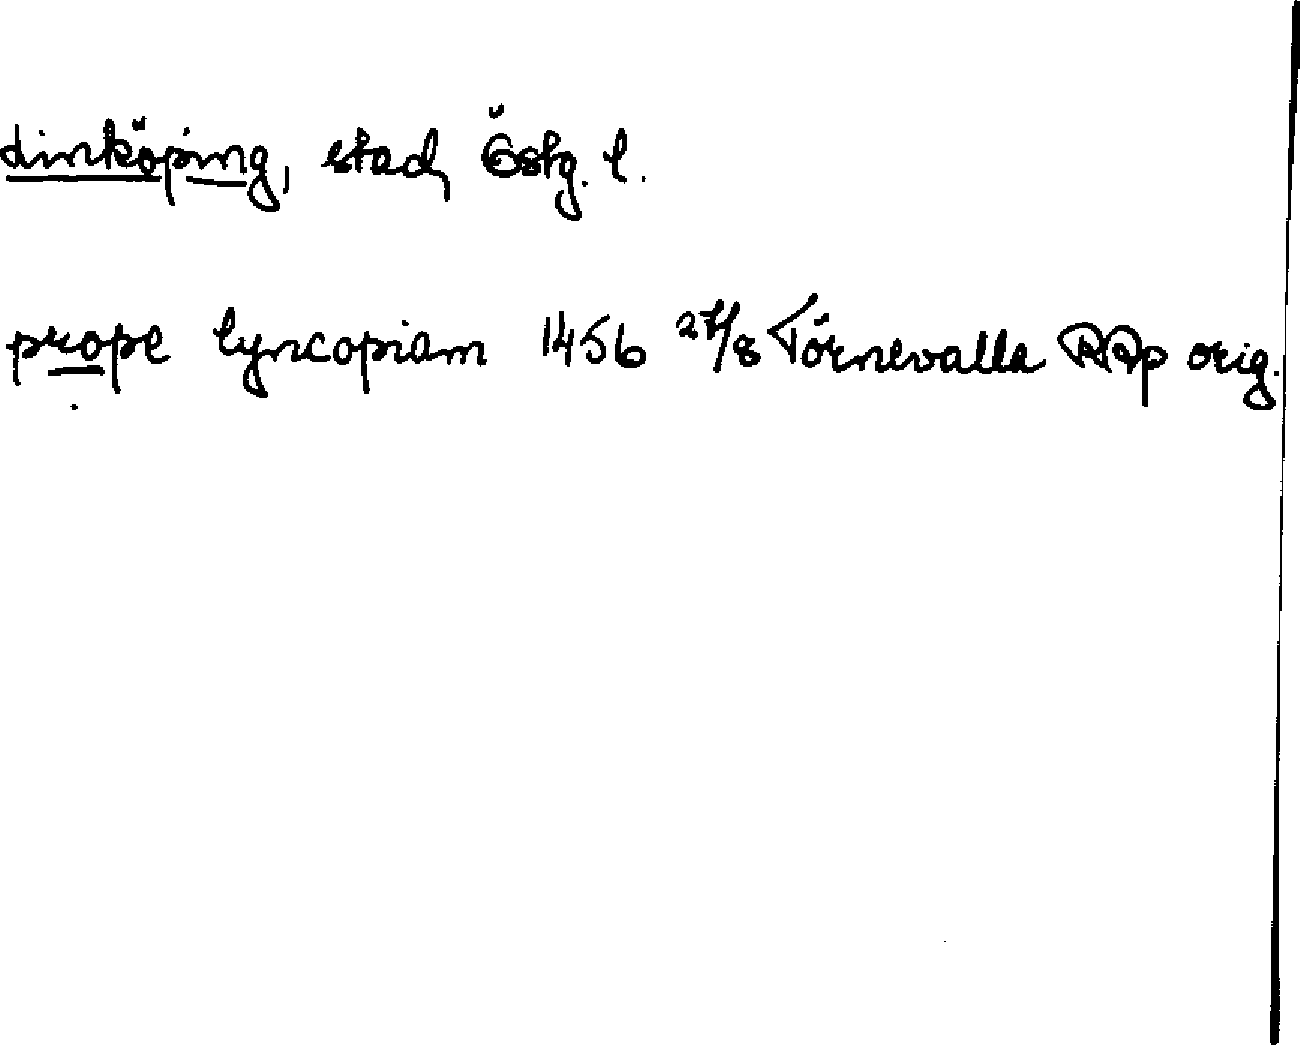 Linköping, stad, Östg. l.
prope lyncopiam 1456 27/8 Törnevalla RAp orig.